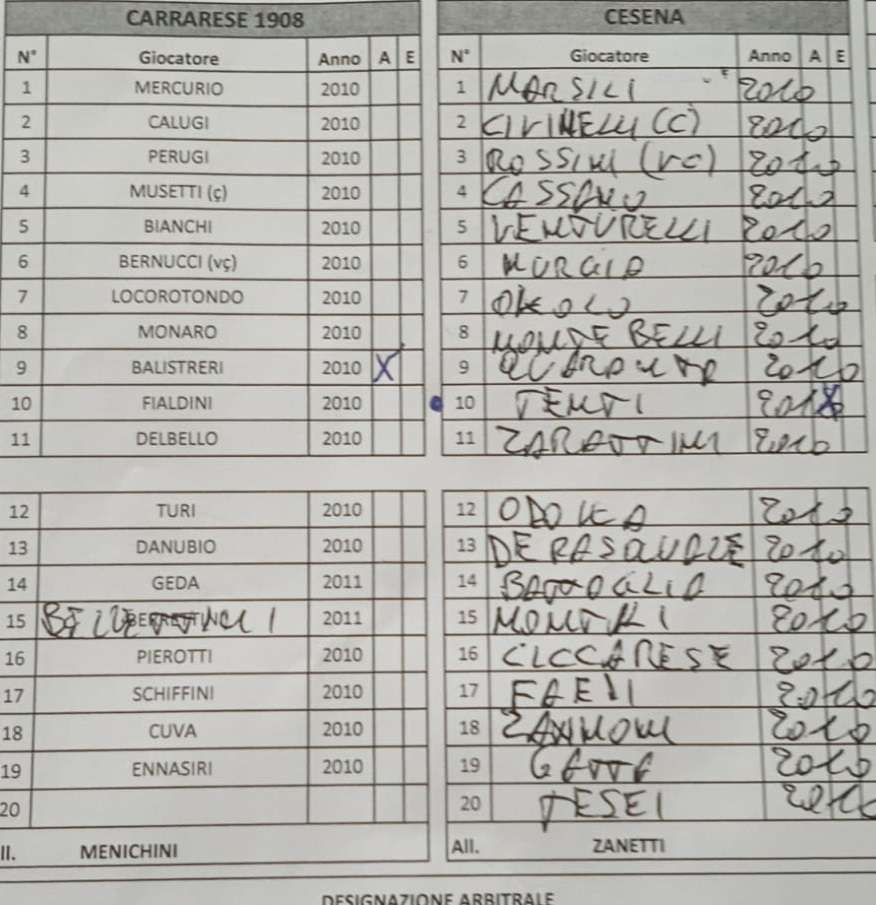 CARRARESE 1908 CESENA
N° Giocatore Anno A E N° Giocatore Anno A E
1 MERCURIO 2010 1 MARSILI 2010
2 CALUGI 2010 2 CIVINELLI (C) 2010
3 PERUGI 2010 3 ROSSINI (VC) 2010
4 MUSETTI (ç) 2010 4 CASSANO 2010
5 BIANCHI 2010 5 VENTURELLI 2010
6 BERNUCCI (vç) 2010 6 MURGIA 2010
7 LOCOROTONDO 2010 7 2010
8 MONARO 2010 8 MONTEBELLI 2010
9 BALISTRERI 2010 X 9 2010
10 FIALDINI 2010 10 TENTI X
11 DELBELLO 2010 11 ZARATTINI 2010
12 TURI 2010 12 2010
13 DANUBIO 2010 13 2010
14 GEDA 2011 14 BATTAGLIA 2010
15 2011 15 MONTALI 2010
16 PIEROTTI 2010 16 CICCARESE 2010
17 SCHIFFINI 2010 17 FAELLI 2010
18 CUVA 2010 18 ZANNONI 2010
19 ENNASIRI 2010 19 2010
20 20 TESEI 2010
ll. MENICHINI All. ZANETTI
DESIGNAZIONE ARBITRALE